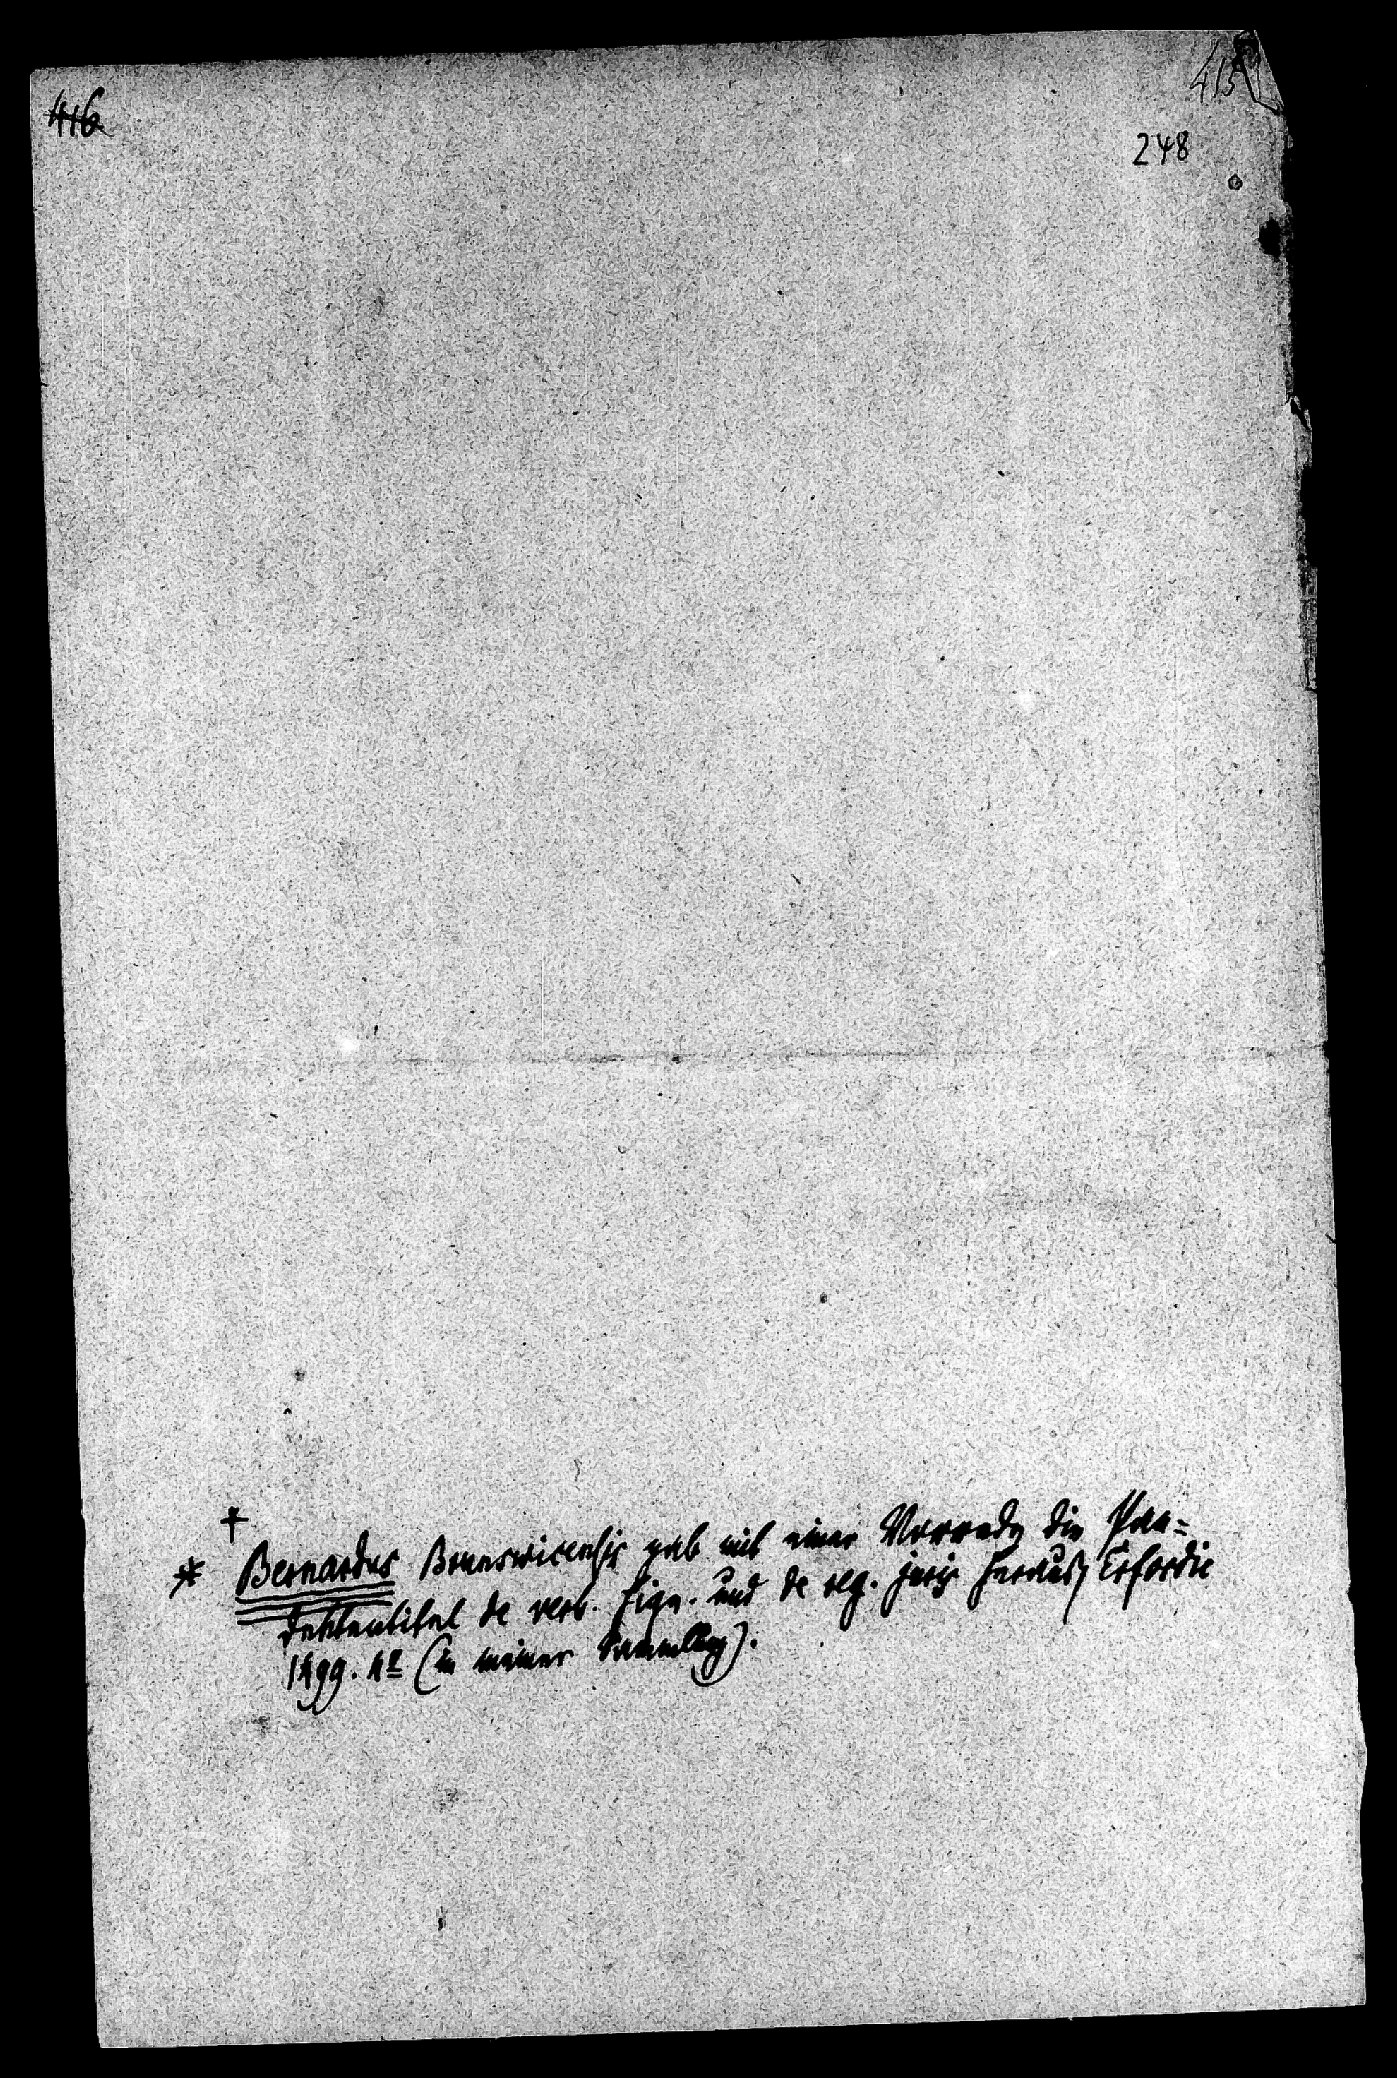 416
415
248
†
* Bernardus Brunswicensis gab mit einer Vorrede die Pan=
dektentitel de verb. sign. und de reg. juris heraus, Erfordie
1499. 4º (in meiner Sammlung).